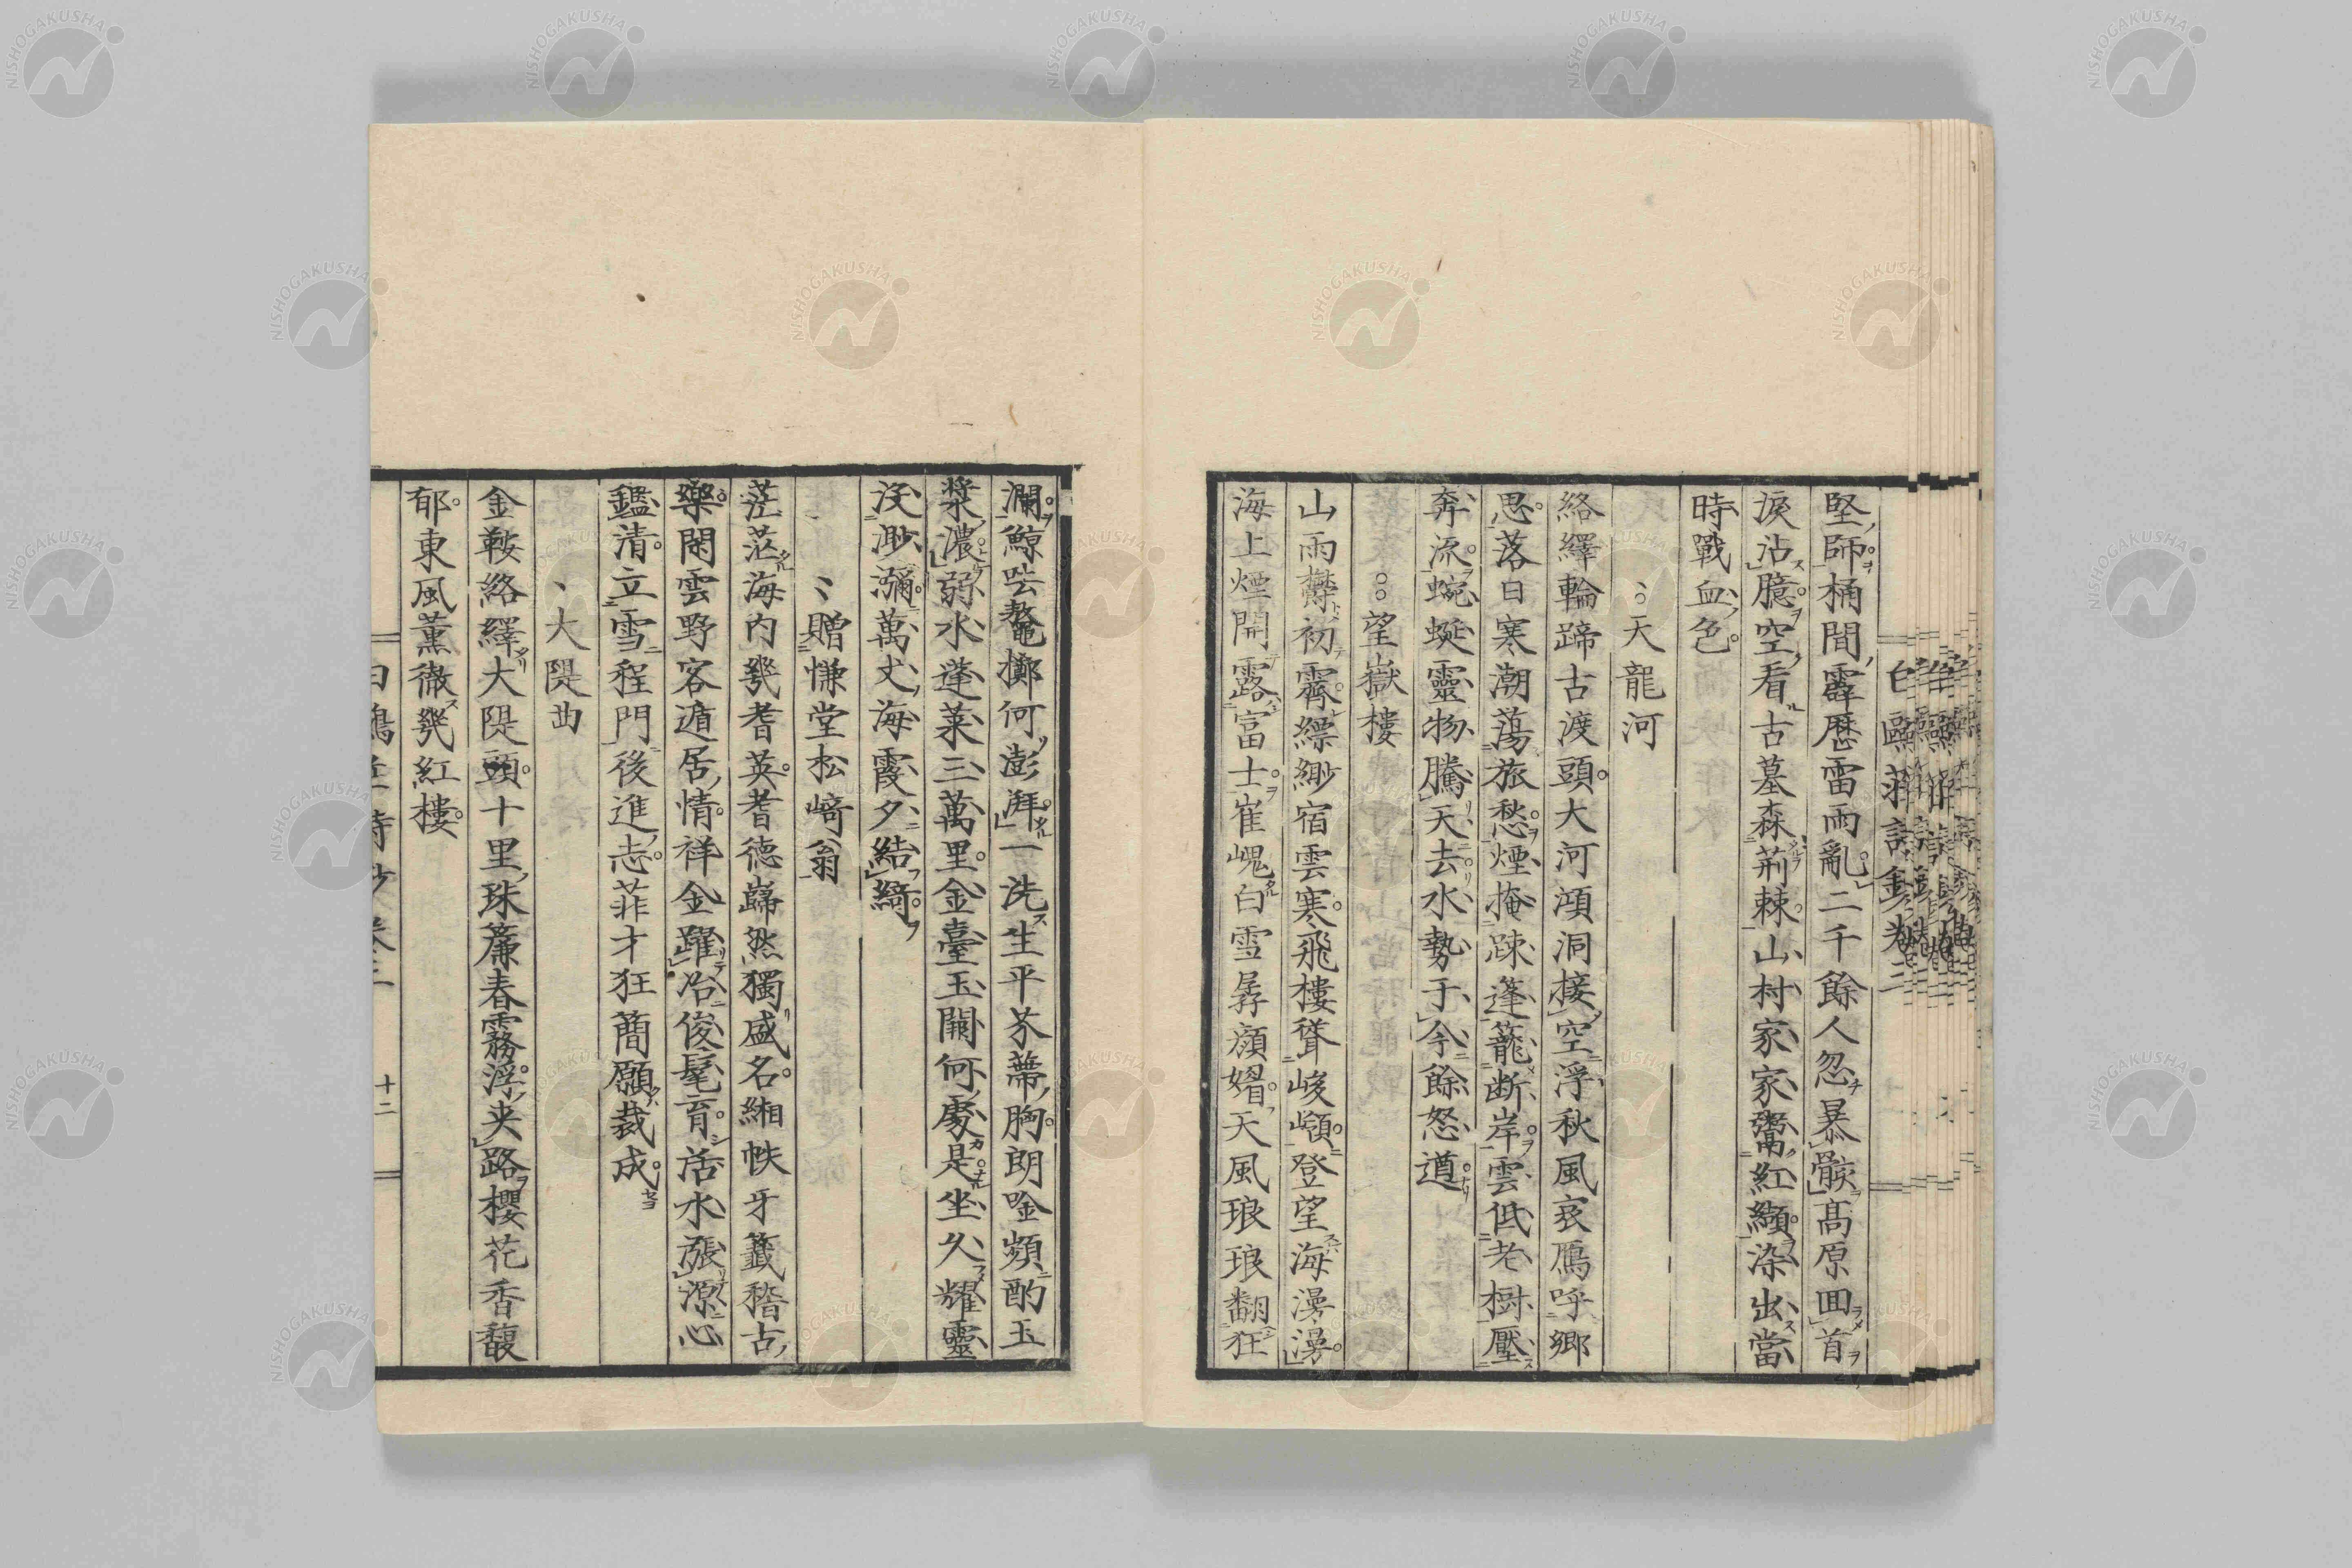 堅師桶間霹歷雷雨亂二千餘人忽暴骸髙原囬首
淚沾臆空看古墓森荊棘山村家家鬻紅纈染出當
時戰血色
天龍河
絡繹輪蹄古渡頭大河澒洞接空浮秋風哀鴈呼鄉
思落日寒潮蕩旅愁煙掩疎篷籠断岸雲低老樹壓
奔流蜿蜒靈物騰天去水勢于今餘怒遒
望嶽樓
山雨欝初霽縹緲宿雲寒飛樓聳峻巓登望海漫漫
海上煙開露富士崔嵬白雪孱顔媚天風琅琅翻狂
瀾鯨呿鼇擲何澎湃一洗生平芥蔕胸朗唫頻酌玉
漿濃弱水蓬萊三萬里金臺玉闕何處是坐久耀靈
沒渺瀰萬丈海霞夕結綺
贈慊堂松﨑翁
茫茫海内幾耆英耆德巋然獨盛名緗帙牙籤稽古
樂閑雲野客遁居情祥金躍冶俊髦育活水漲源心
鑑清立雪程門後進志菲才狂簡願裁成
大隄曲
金鞍絡繹大隄頭十里珠簾春霧浮夾路櫻花香馥
郁東風薰徹幾紅樓
十二
NISHOGAKUSHA